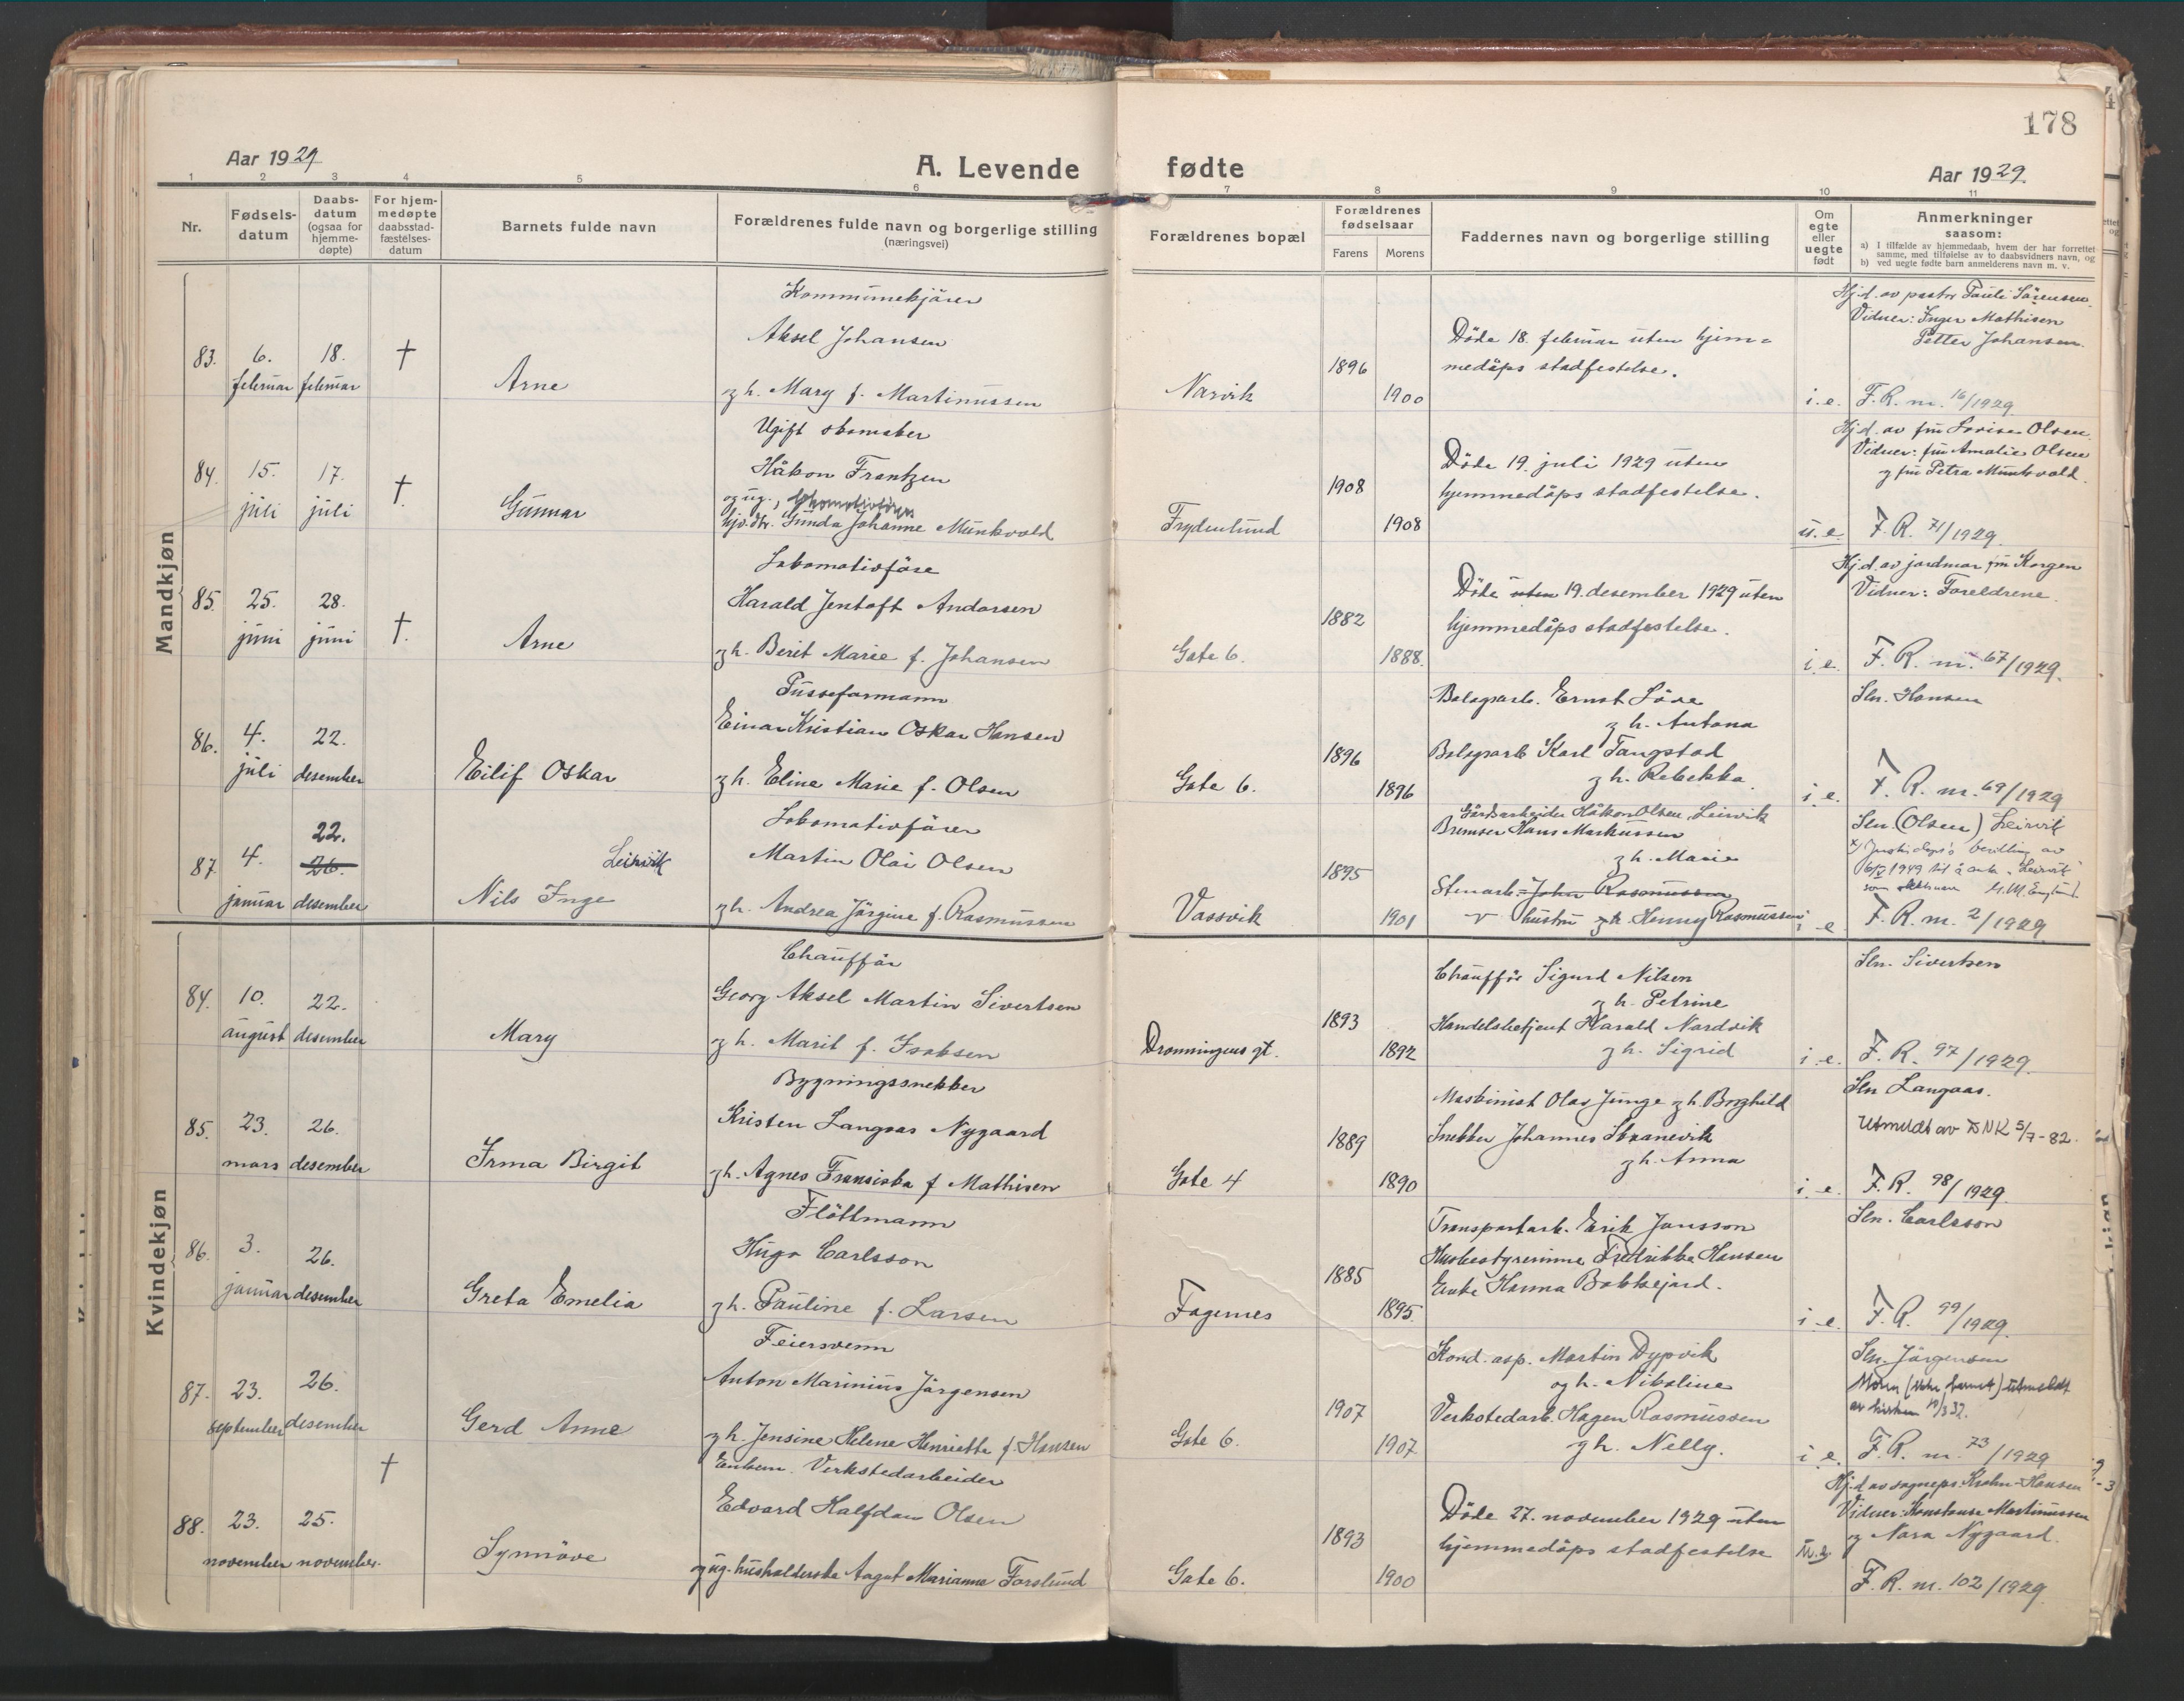 178
Aar 1929
A. Levende fødte
Aar 1929.
1 2 3 4 5 6 7 8 9 10 11
Nr.
Fødsels-
datum
Daabs-
datum
(ogsaa for
hjemme-
døpte)
For hjem-
medøpte
daabsstad-
fæstelses-
datum
Barnets fulde navn
Forældrenes fulde navn og borgerlige stilling
(næringsvei)
Forældrenes bopæl
Forældrenes
fødselsaar
Farens
Morens
Faddernes navn og borgerlige stilling
Om
egte
eller
uegte
født
Anmerkninger
saasom:
a) I tilfælde av hjemmedaab, hvem der har forrettet
samme, med tilføielse av to daabsvidners navn, og
b) ved uegte fødte barn anmelderens navn m. v.
Mandkjøn
83.
6.
februar
18.
februar
†
Arne
Kommunekjører
Aksel Johansen
og h. Mary f. Martinussen
Narvik
1896
1900
Døde 18. februar uten hjem=
medåps stadfestelse.
i. e.
Hj.d. av pastor Pauli Sørensen.
Vidner: Inger Mathisen
Petter Johansen.
F. R. nr. 16/1929
84.
15.
juli
17.
juli
†.
Gunnar
Ugift skomaker
Håkon Frantzen
og ug.,
hjv. dtr. Gunda Johanne Munkvold
Frydenlund
1908
1908
Døde 19. juli 1929 uten
hjemmedåps stadfestelse.
u. e.
Hj.d. av fru Lovise Olsen.
Vidner: fru Amalie Olsen
og fru Petra Munkvold.
F. R. 71/1929.
85.
25.
juni
28.
juni
†.
Arne
Lokomotivføre
Harald Jentoft Andorsen
og h. Berit Marie f. Johansen
Gate 6.
1882
1888.
Døde uten 19. desember 1929 uten
hjemmedåps stadfestelse.
i. e.
Hj.d. av jordmor fru Korgen
Vidner: Foreldrene.
F. R. nr. 67/1929.
86.
4.
juli
22.
desember
Eilif Oskar
Pusseformann
Einar Kristian Oskar Hansen
og h. Eline Marie f. Olsen
Gate 6.
1896
1896
Bolagsarb. Ernst Löve
og h. Antona
Bolagsarb. Karl Tangstad
og h. Rebekka.
i. e.
Sln. Hansen
F. R. nr. 69/1929
87.
4.
januar
22.
26.
desember
Leirvik
Nils Inge
Lokomotivfører
Martin Olai Olsen
og h. Andrea Jørgine f. Rasmussen
Vassvik
1895
1901
Gårdsarbeider Håkon Olsen, Leirvik
Bremser Hans Markussen
og h. Marie
Stenarb. John Rasmussen
hustru og h. Henny Rasmussen
i e.
Sln. (Olsen) Leirvik
bevilling av
1949 til å anta "Leirvik"
som
F. R. nr. 2/1929
Kvindekjøn
84.
10.
august
22.
desember
Mary
Chauffør
Georg Aksel Martin Sivertsen
og h. Marit f. Isaksen
Dronningens gt.
1893
1892
Chauffør Sigurd Nilsen
og h. Petrine
Handelsbetjent Harald Nordvik
og h. Sigrid
i. e.
Sln. Sivertsen
F. R. 97/1929.
85.
23.
mars
26.
desember
Irma Birgit
Bygningssnekker
Kristen Langaas Nygaard
og h. Agnes Fransiska f Mathisen
Gate 4
1889
1890
Maskinist Olav Junge og h. Borghild
Snekker Johannes Stranevik
og h. Anna
i. e.
Sln Langaas.
Utmeldt av DNK 5/7-82.
F. R. 98/1929.
86.
3.
januar
26.
desember
Greta Emelia
Flöttmann
Hugo Carlsson
og h. Pauline f. Larsen
Fagernes
1885
1895.
Transportarb. Erik Jonsson
Husbestyrerinne Fredrikke Hansen
Enke Hanna Bakkejord.
i. e.
Sln. Carlsson
F. R. 99/1929.
87.
23.
september
26.
desember
Gerd Anne
Feiersvenn
Anton Marinius Jørgensen
og h. Jensine Helene Henriette f. Hansen
Gate 6.
1907
1907
Kond. asp. Martin Dypvik
og h. Nikoline
Verkstedarb. Hagen Rasmussen
og h. Nelly.
i. e.
Sln. Jørgensen
Moren (ikke barnet) utmeldt
av kirken 32.
F. R. nr. 73/1929
88.
23.
november
25.
november.
†
Synnöve
Enkem. Verkstedarbeider
Edvard Halfdan Olsen
og ug. husholderske Aagot Marianne Forslund
Gate 6.
1893
1900
Døde 27. november 1929 uten
hjemmedåps stadfestelse
u. e.
Hj.d. av sognepr. Krohn-Hansen
Vidner: Konstanse Martinussen
og Nora Nygaard.
F. R. nr. 102/1929.